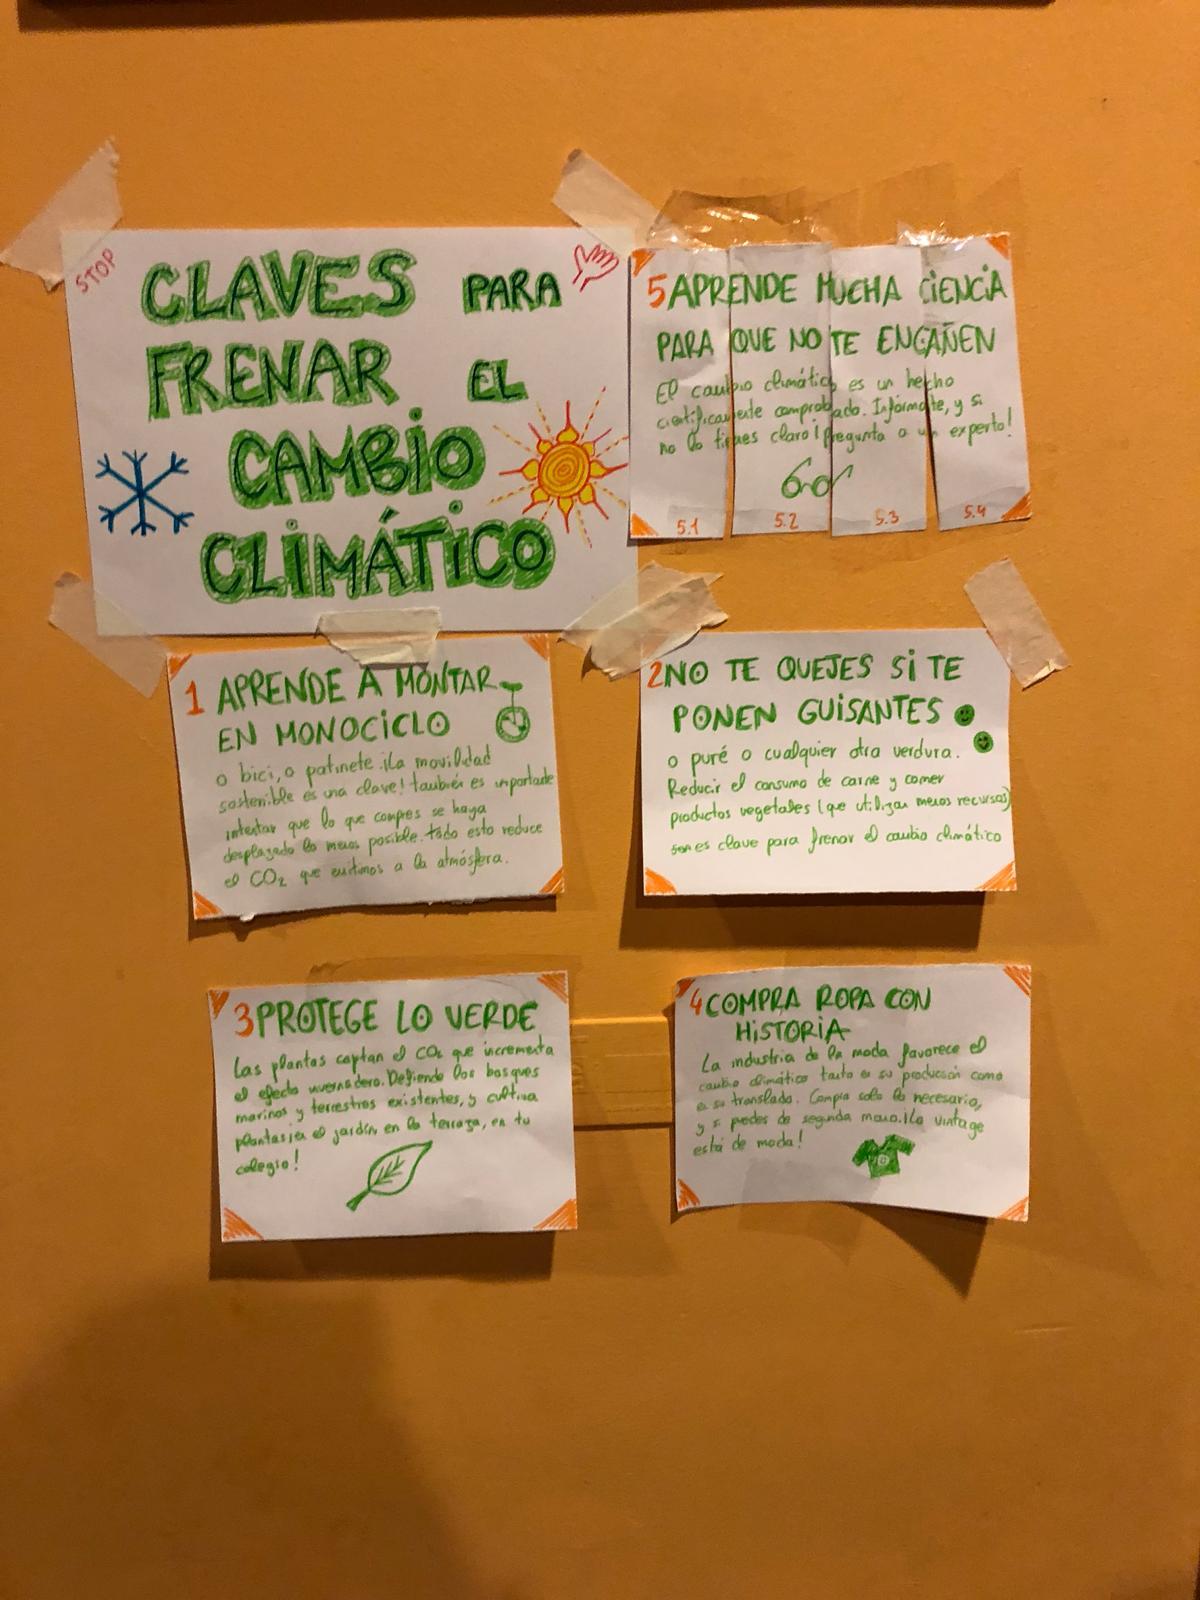 STOP
CLAVES PARA
FRENAR EL
CAMBIO
CLIMÁTICO
1 APRENDE A MONTAR
EN MONOCICLO
o bici, o patinete. ¡La movilidad
sostenible es una clave! también es importante
intentar que lo que compres se haya
desplazado lo menos posible. todo esto reduce
el CO2 que emitimos a la atmósfera.
2 NO TE QUEJES SI TE
PONEN GUISANTES
o puré o cualquier otra verdura.
Reducir el consumo de carne y comer
productos vegetales (que utilizan menos recursos)
es clave para frenar el cambio climático
3 PROTEGE LO VERDE
Las plantas captan el CO2 que incrementa
el efecto invernadero. Defiende los bosques
marinos y terrestres existentes, y cultiva
plantas ¡en el jardín, en la terraza, en tu
colegio!
4 COMPRA ROPA CON
HISTORIA
La industria de la moda favorece el
cambio climático tanto en su producción como
en su translado. Compra solo lo necesario,
y si puedes de segunda mano. ¡Lo vintage
está de moda!
5 APRENDE MUCHA CIENCIA
PARA QUE NO TE ENGAÑEN
El cambio climático es un hecho
científicamente comprobado. Infórmate, y si
no lo tienes claro ¡pregunta a un experto!
5.1 5.2 5.3 5.4